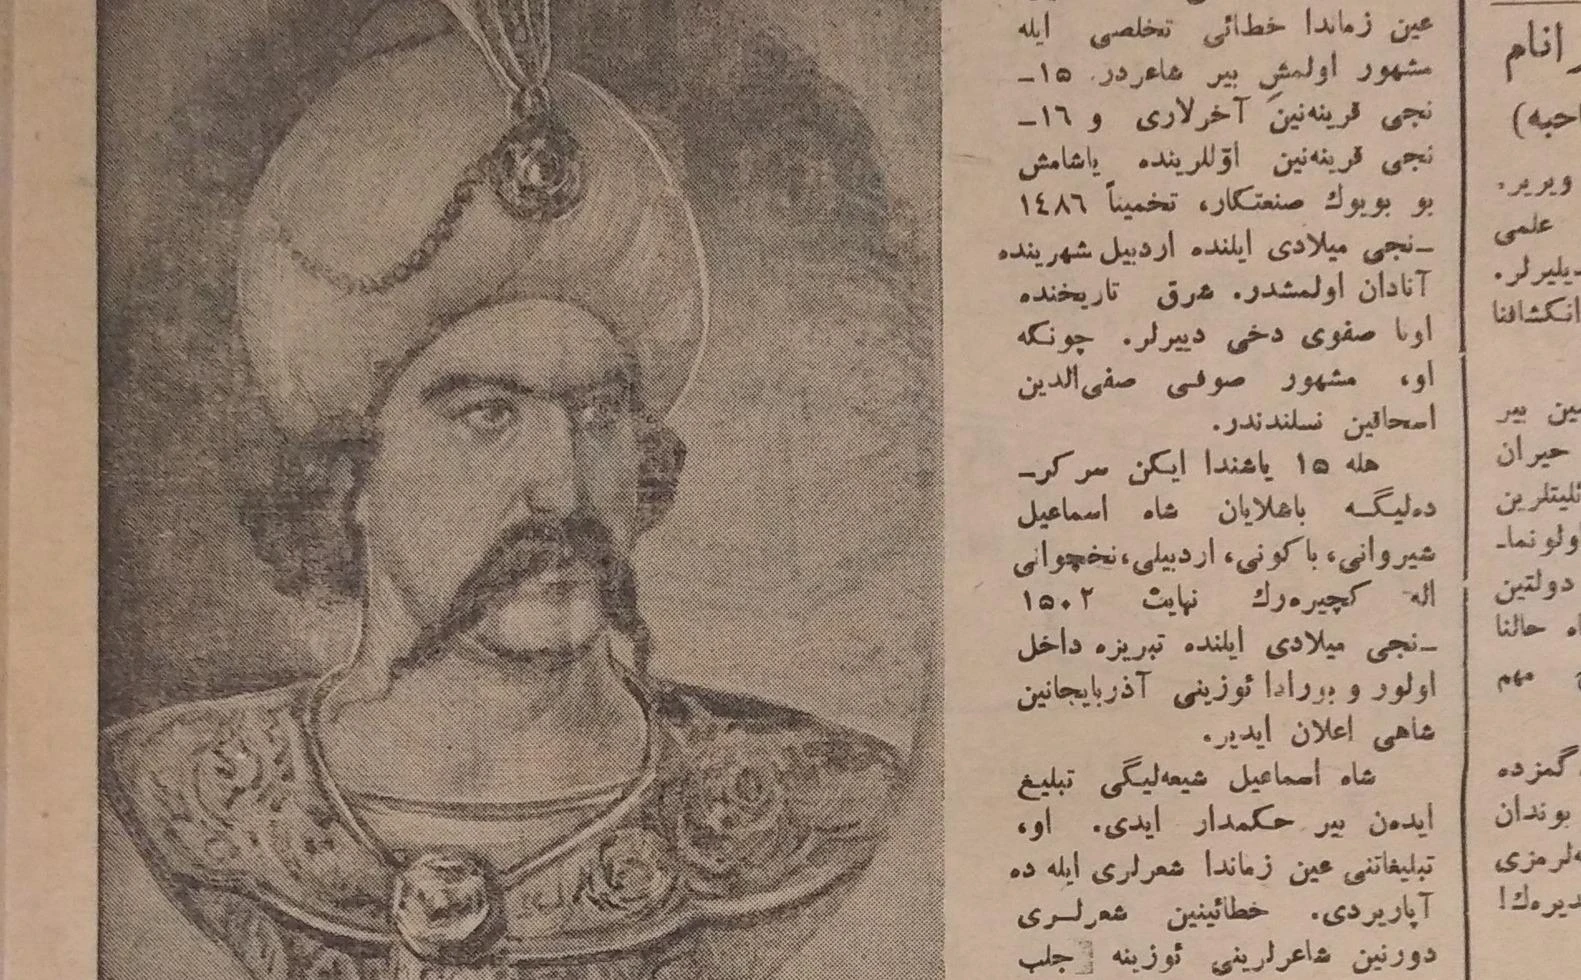 عین زماندا خطائی تخلصی ایله
مشهور اولمش بیر شاعردر. ١٥ـ
نجی قرینه‌نین آخرلاری و ١٦ـ
نجی قرینه‌نین اوّللرینده یاشامش
بو بویوك صنعتکار، تخمیناً ١٤٨٦
ـنجی میلادی ایلنده اردبیل شهرینده
آنادان اولمشدر. شرق تاریخنده
اونا صفوی دخی دییرلر. چونکه
او، مشهور صوفی صفی‌الدین
اسحاقین نسلندندر.
هله ١٥ یاشندا ایکن سرکر‌ـ
ده‌لیگـه باشلایان شاه اسماعیل
شیروانی، باکونی، اردبیلی، نخچوانی
اله کچیره‌رك نهایت ١٥٠٢
ـنجی میلادی ایلنده تبریزه داخل
اولور و بورادا ئوزینی آذربایجانین
شاهی اعلان ایدیر.
شاه اسماعیل شیعه‌لیگی تبلیغ
ایده‌ن بیر حکمدار ایدی. او،
تبلیغاتنی عین زماندا شعرلری ایله ده
آپاریردی. خطائینین شعرلـری
دورنین شاعرلرینی ئوزینه جلب
انام
ویریر.
علمی
دیلیرلر.
انکشافنا
بیر
حیران
دولتین
حالنا
مهم
گمزده
بوندان